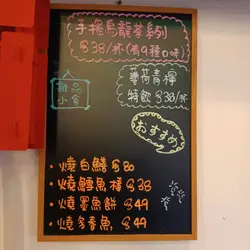 手搖烏龍茶系列
$38/杯(有9種口味)
薄荷青檸
特飲 $38/杯
新品
小食
おすすめ
・燒白鱔 $80
・燒鱈魚棒 $38
・燒墨魚餅 $49
・燒多春魚 $49